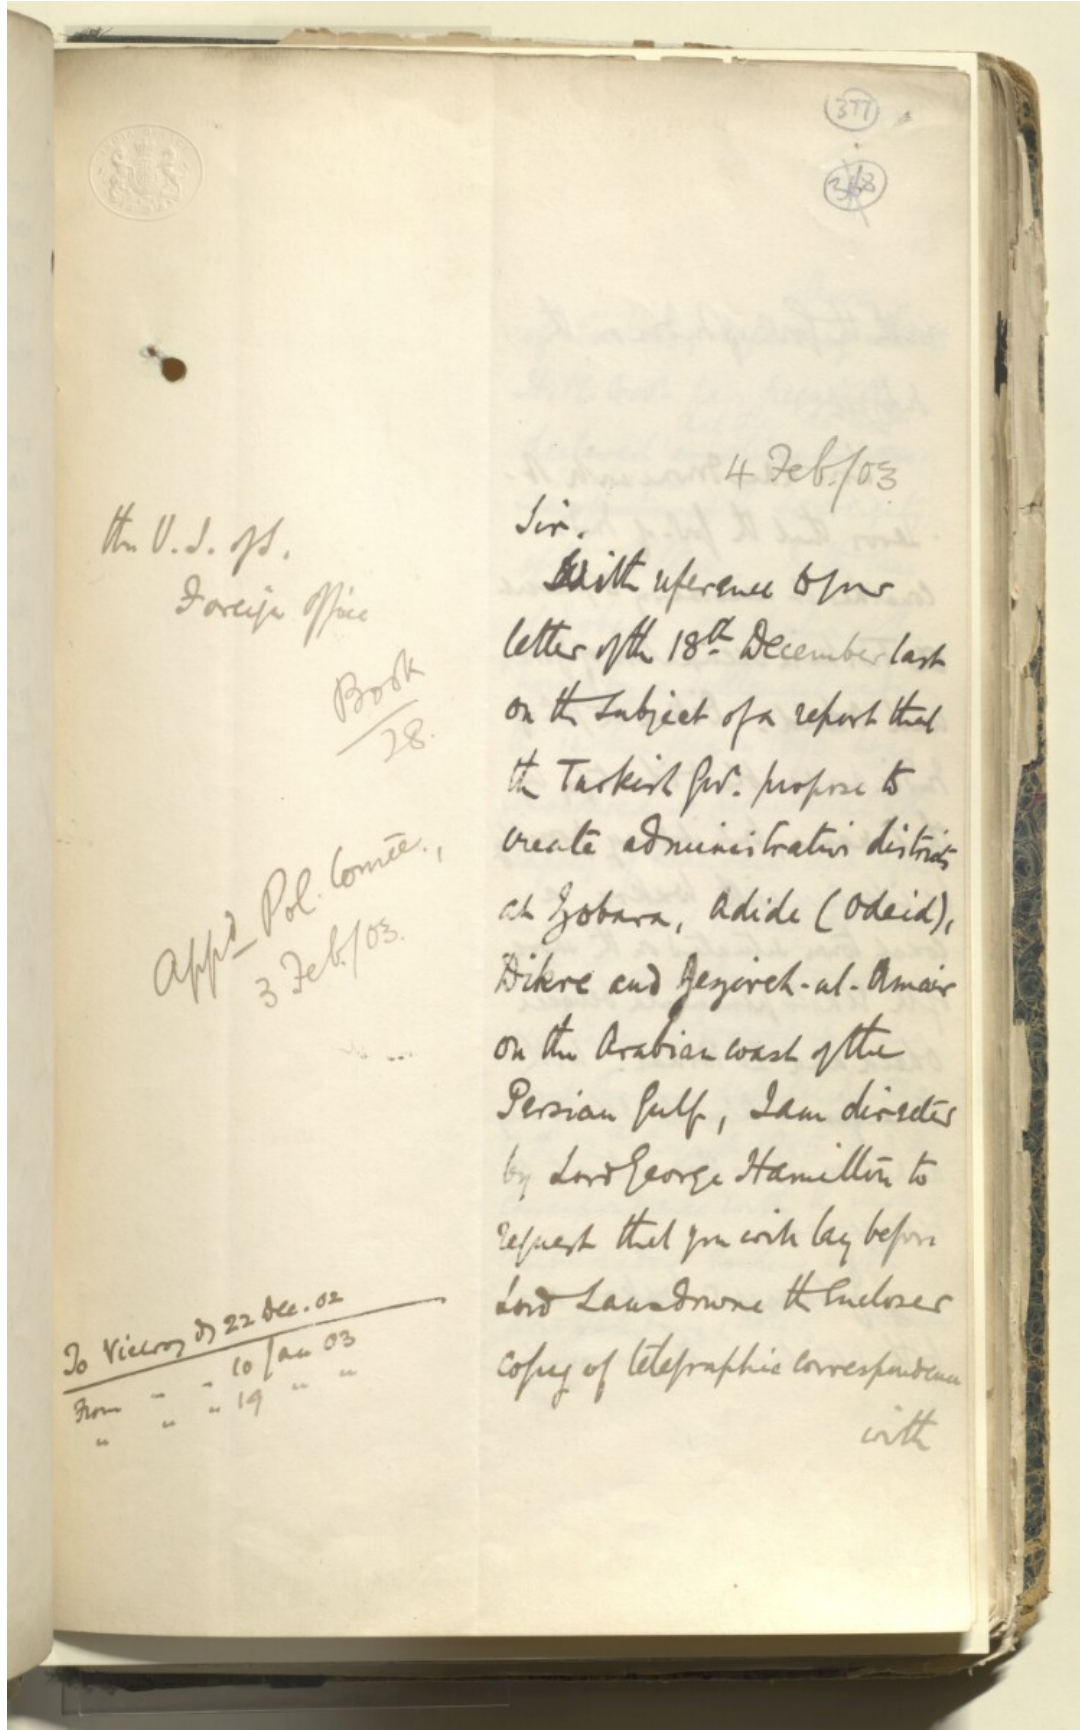 377
368
4 Feb./03
the U.S. of S.
Foreign Office
Book
28.
Appd Pol. Comtee.,
3 Feb./03.
To Viceroy dy 22 Dec. 02
From " " 10 Jan 03
" " " 19 " "
Sir.
With reference to your
letter of the 18th December last
on the subject of a report that
the Turkish Govt. propose to
create administrative districts
at Zobara, Adide (Odeid),
Dikre and Jezireh-ul-Amair
on the Arabian coast of the
Persian Gulf, I am directed
by Lord George Hamilton to
request that you will lay before
Lord Lansdowne the enclosed
copy of telegraphic correspondence
with